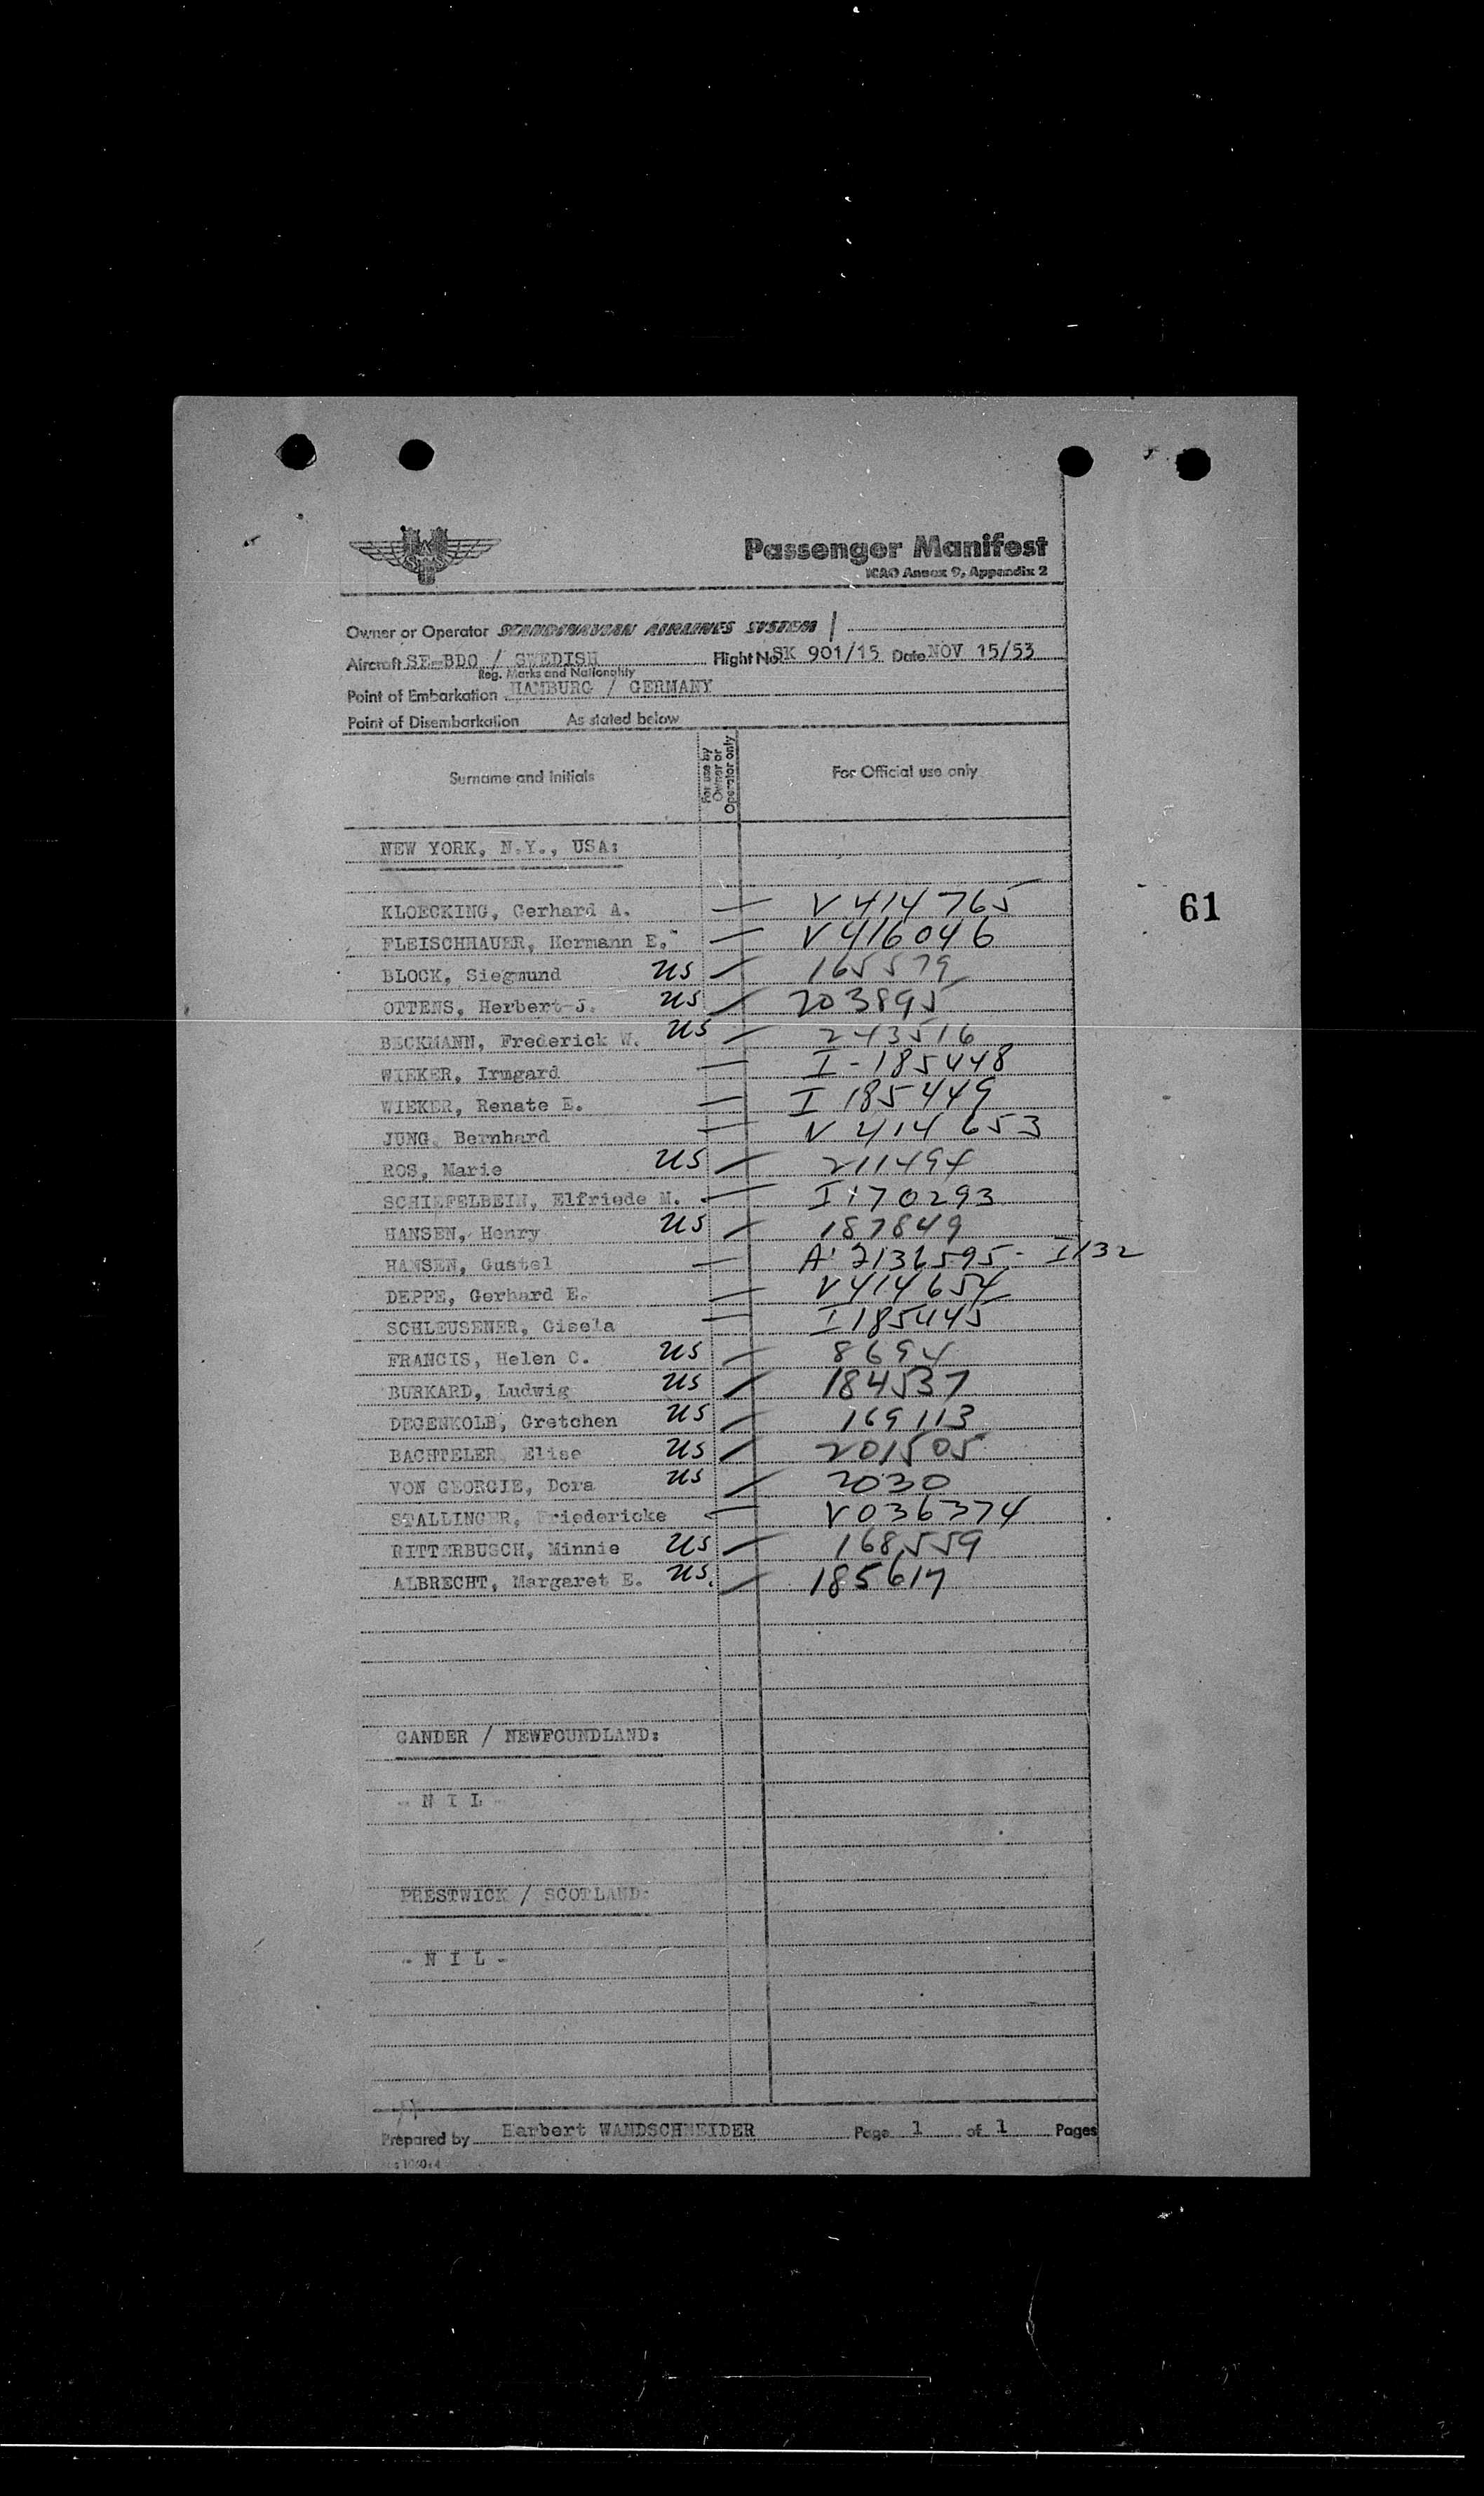 Passenger Manifest
ICAO Annex 9, Appendix 2
Owner or Operator SCANDINAVIAN AIRLINES SYSTEM
Aircraft SE-BDO / SWEDISH Flight No. SK 901/15 Date NOV 15/53
Reg. Marks and Nationality
Point of Embarkation HAMBURG / GERMANY
Point of Disembarkation As stated below
Surname and Initials For use by Owner or Operator only For Official use only
NEW YORK, N.Y., USA:
61
KLOECKING, Gerhard A. — V 414765
FLEISCHHAUER, Hermann E. — V 416046
BLOCK, Siegmund US — 165579
OTTENS, Herbert J. US — 203895
BECKMANN, Frederick W. US — 243516
WIEKER, Irmgard — I-185448
WIEKER, Renate E. — I 185449
JUNG, Bernhard — V 414653
ROS, Marie US — 211494
SCHIEFELBEIN, Elfriede M. — I 170293
HANSEN, Henry US — 187849
HANSEN, Gustel — A 7136595 - I 132
DEPPE, Gerhard E. — V414654
SCHLEUSENER, Gisela — I 185445
FRANCIS, Helen C. US — 8694
BURKARD, Ludwig US — 184537
DEGENKOLB, Gretchen US — 169113
BACHTELER, Elise US — 201505
VON GEORGIE, Dora US — 2030
STALLINGER, Friedericke — V 036374
RITTERBUSCH, Minnie US — 168559
ALBRECHT, Margaret E. US. — 185617
GANDER / NEWFOUNDLAND:
- N I L -
PRESTWICK / SCOTLAND:
- N I L -
Prepared by Harbert WANDSCHNEIDER Page 1 of 1 Pages